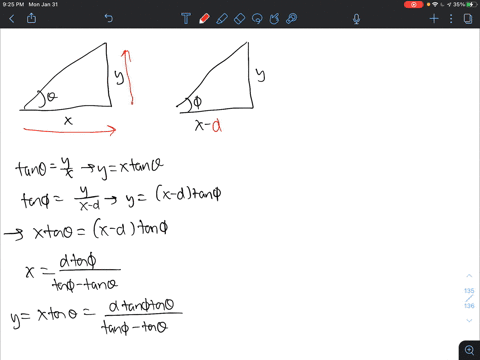 9:25 PM Mon Jan 31
35%
θ
y
x
ϕ
y
x-d
tanθ = y/x → y = xtanθ
tanϕ = y/(x-d) → y = (x-d)tanϕ
→ xtanθ = (x-d)tanϕ
x = dtanϕ/(tanϕ-tanθ)
y = xtanθ = dtanϕtanθ/(tanϕ-tanθ)
135
/
136